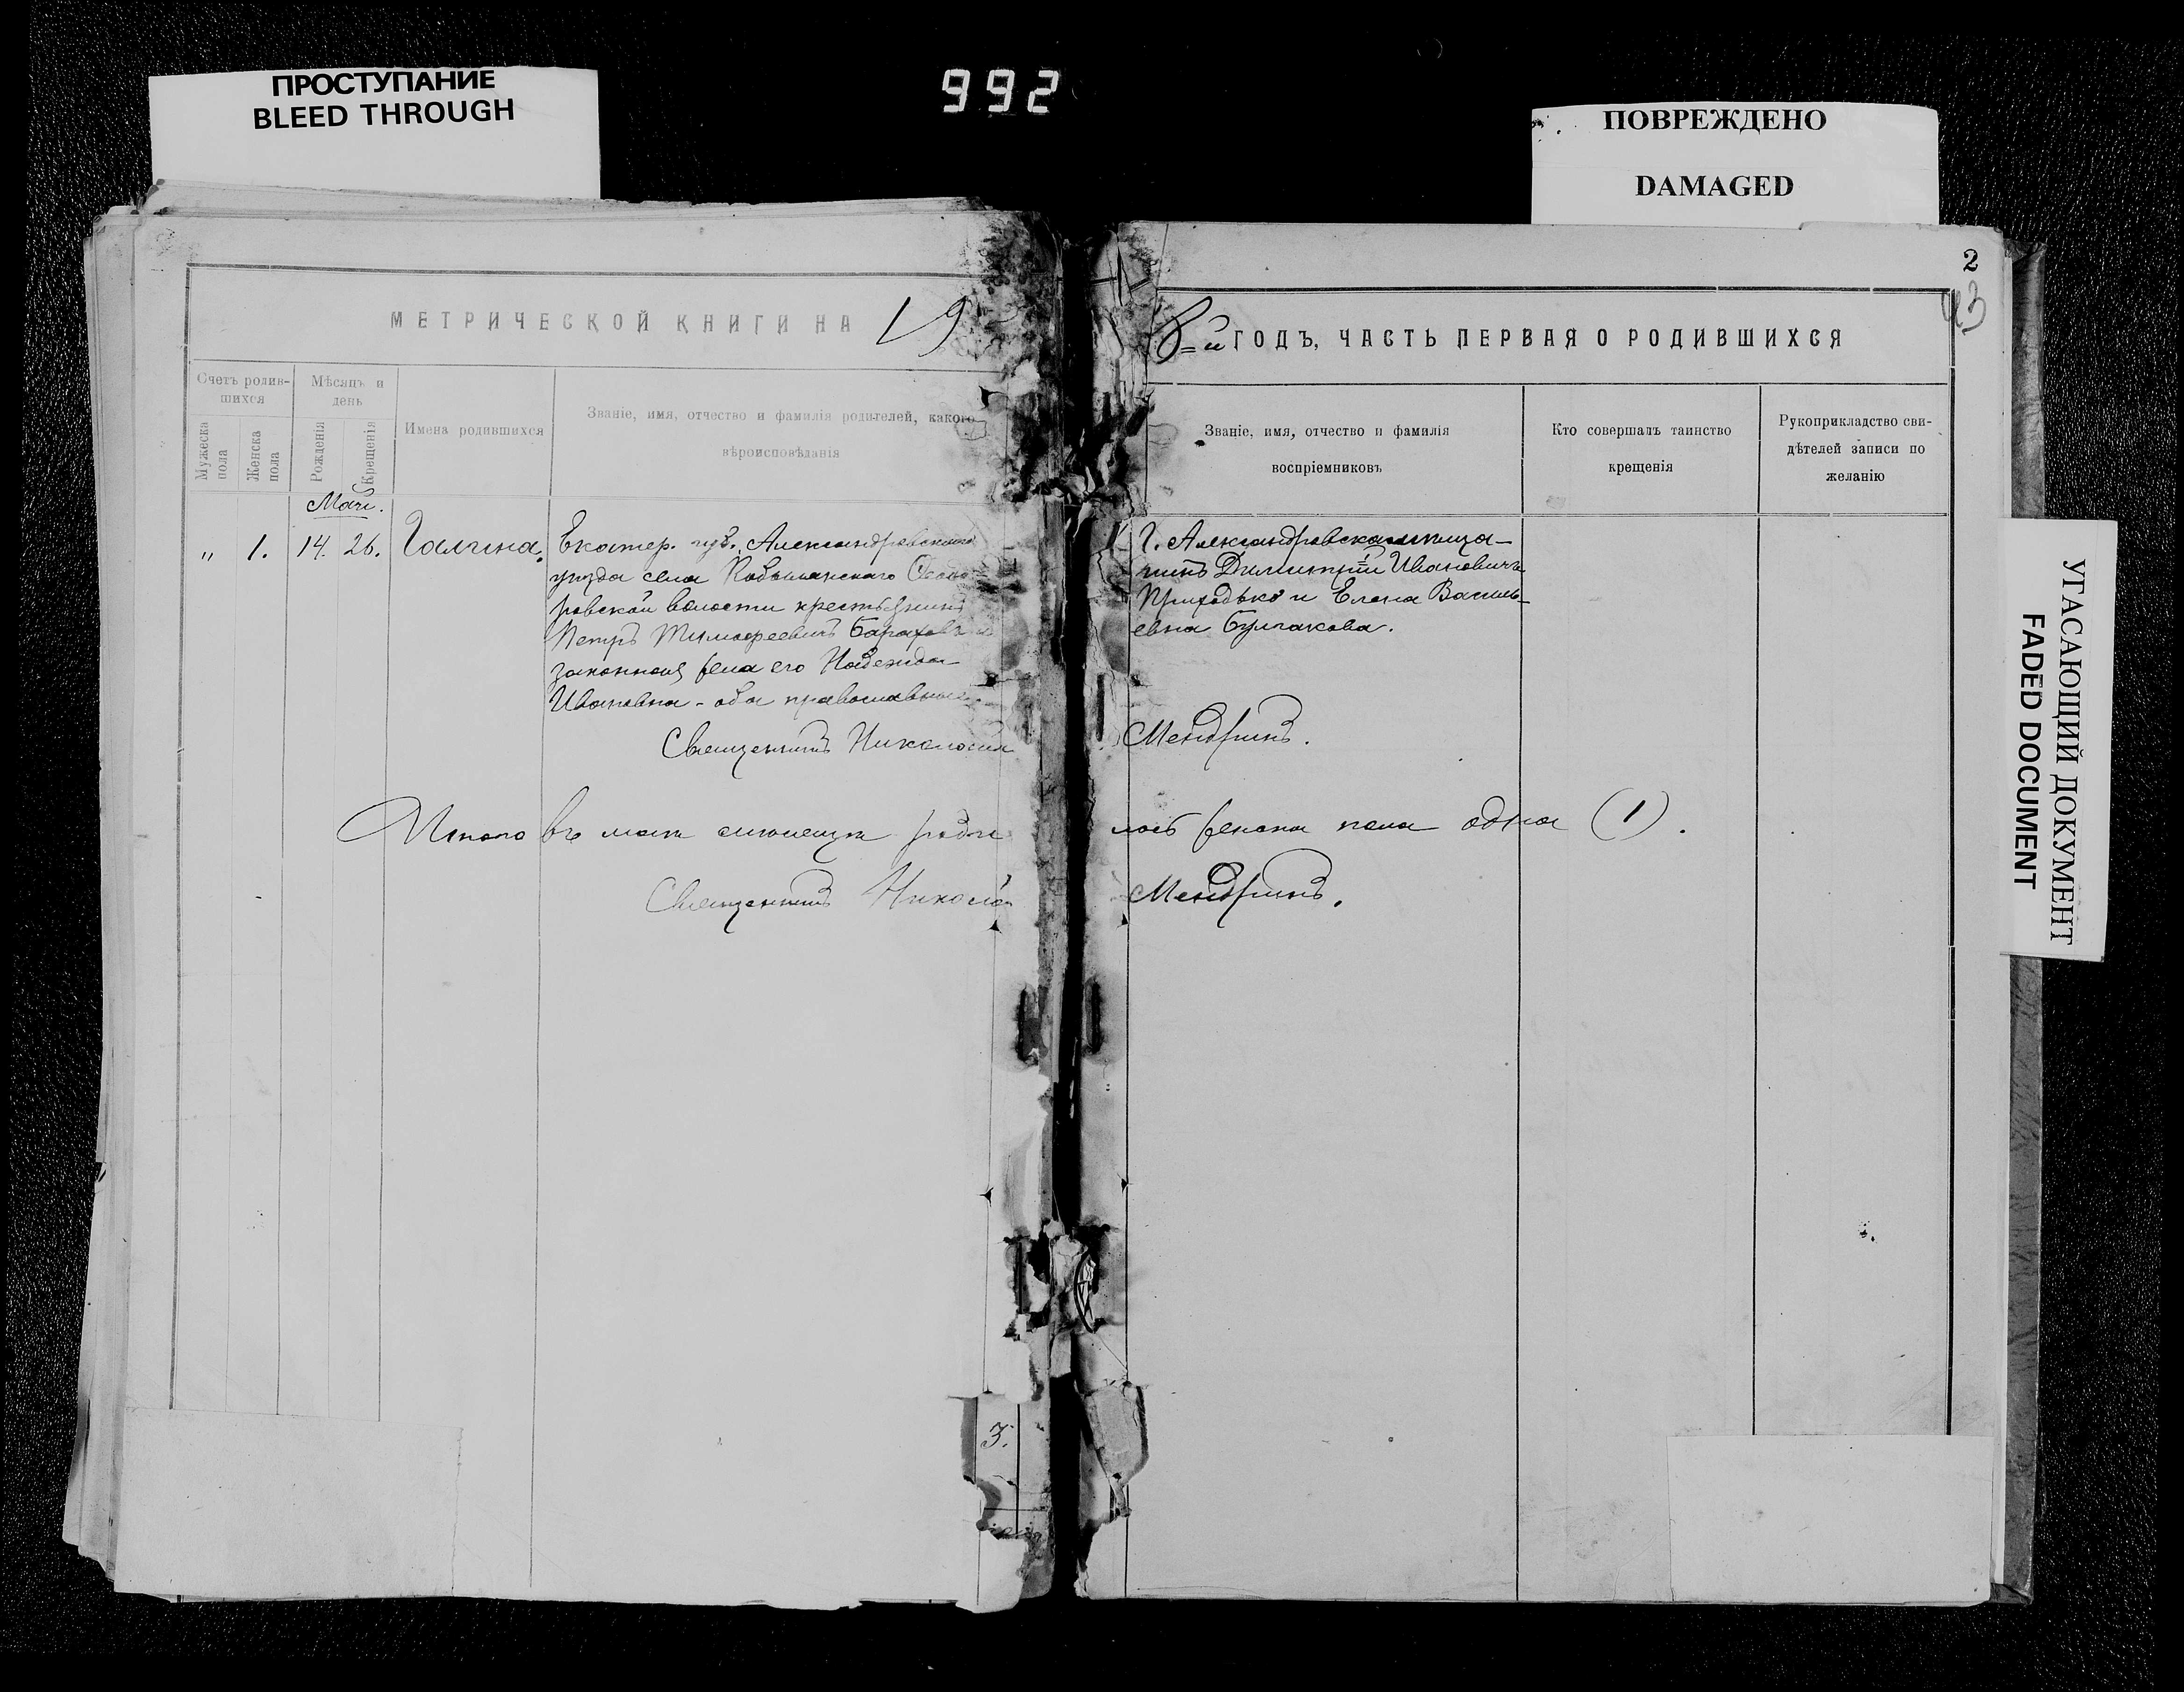 ПРОСТУПАНИЕ
BLEED THROUGH
992
ПОВРЕЖДЕНО
DAMAGED
2
43
МЕТРИЧЕСКОЙ КНИГИ НА 19
8=й ГОДЪ, ЧАСТЬ ПЕРВАЯ О РОДИВШИХСЯ
Счетъ родив-
шихся
Мужеска
пола
Женска
пола
Мѣсяцъ и
день
Рожденія
Крещенія
Имена родившихся
Званіе, имя, отчество и фамилія родителей, какого
вѣроисповѣданія
Званіе, имя, отчество и фамилія
воспріемниковъ
Кто совершалъ таинство
крещенія
Рукоприкладство сви-
дѣтелей записи по
желанію
Май.
" 1. 14. 26. Галина.
Екатер. губ., Александровскаго
уѣзда села
ровской волости крестьянинъ
Петръ Тимофеевичъ
законная жена его Надежда
Ивановна - оба православные
Священникъ Николай
Г. Александровска мѣща-
нинъ Димитрій Ивановичъ
Приходько и Елена Василь-
евна Булгакова.
Мендринъ.
Итого въ маѣ мѣсяцѣ роди
лось женска пола одна (1).
Священникъ Николай
Мендринъ.
3.
УГАСАЮЩИЙ ДОКУМЕНТ
FADED DOCUMENT